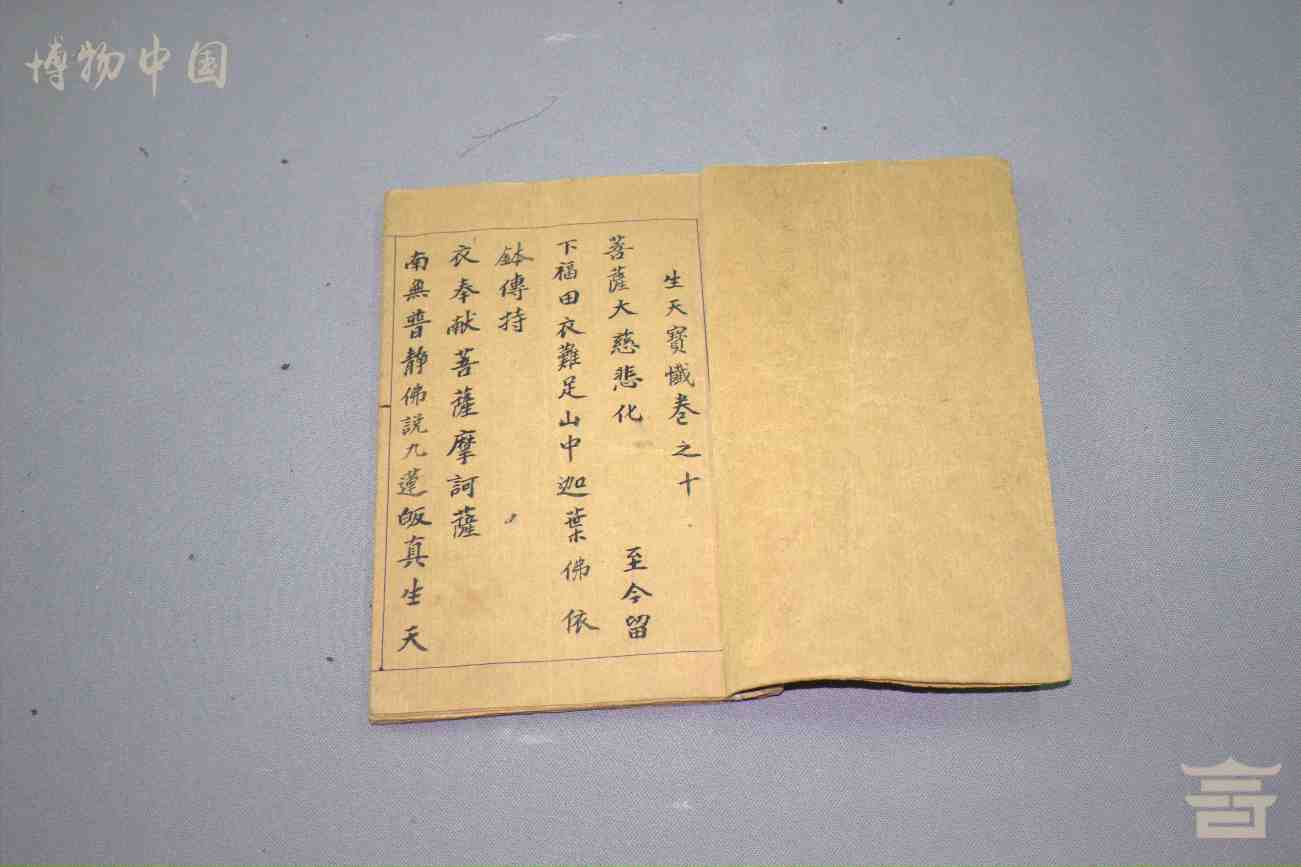 博物中国
生天寳懺卷之十
菩薩大慈悲化 至今留
下福田衣難足山中迦葉佛依
鉢傳持
衣奉献菩薩摩訶薩
南無普静佛説九蓮皈真生天